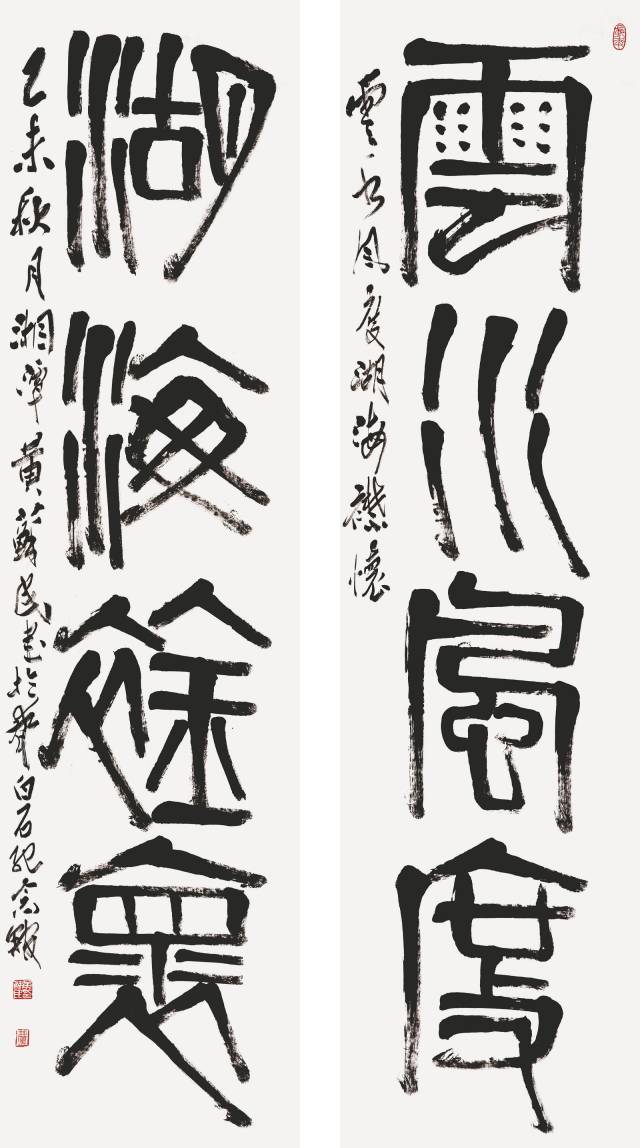 雲水風度
雲水風度湖海襟懷
湖海襟懷
乙未秋月湘潭黃蘇民書於齊白石紀念館